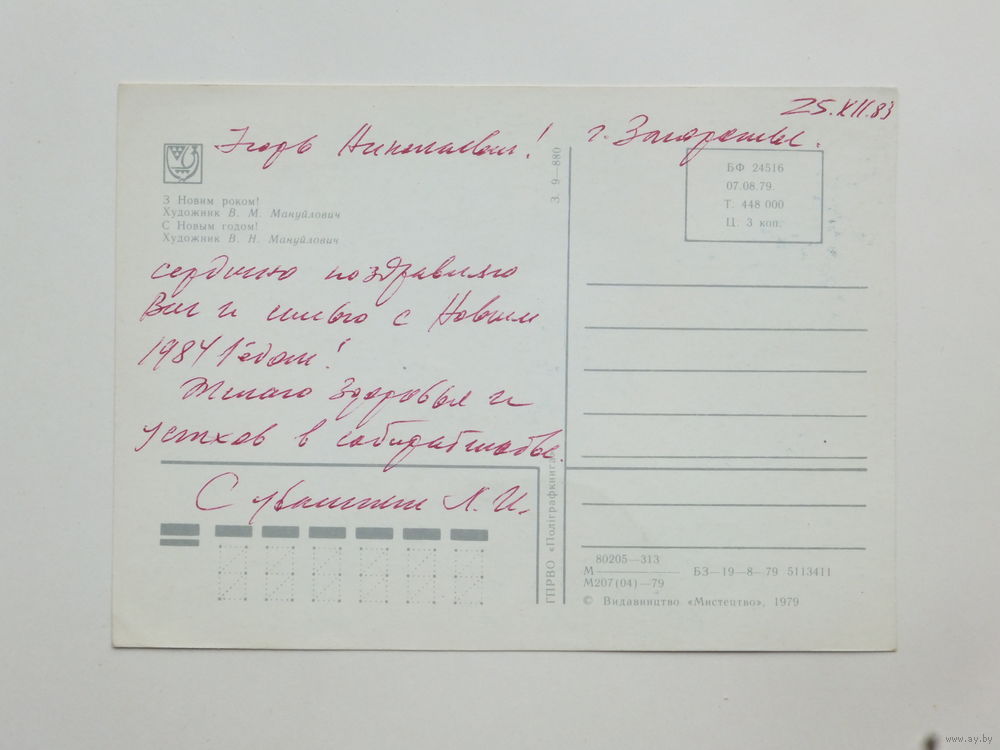 25.XII.83
Игорь Николаевич! г. Запорожье.
З Новим роком!
Художник В. М. Мануйлович
С Новым годом!
Художник В. Н. Мануйлович
сердечно поздравляю
Вас и семью с Новым
1984 Годом!
Желаю здоровья и
успехов в собирательстве.
С уважением Л. И.
З. 9—880
ГПРВО «Поліграфкнига»
БФ 24516
07.08.79.
Т. 448 000
Ц. 3 коп.
80205—313
М
М207(04)—79
БЗ—19—8—79 5113411
© Видавництво «Мистецтво», 1979
www.ay.by